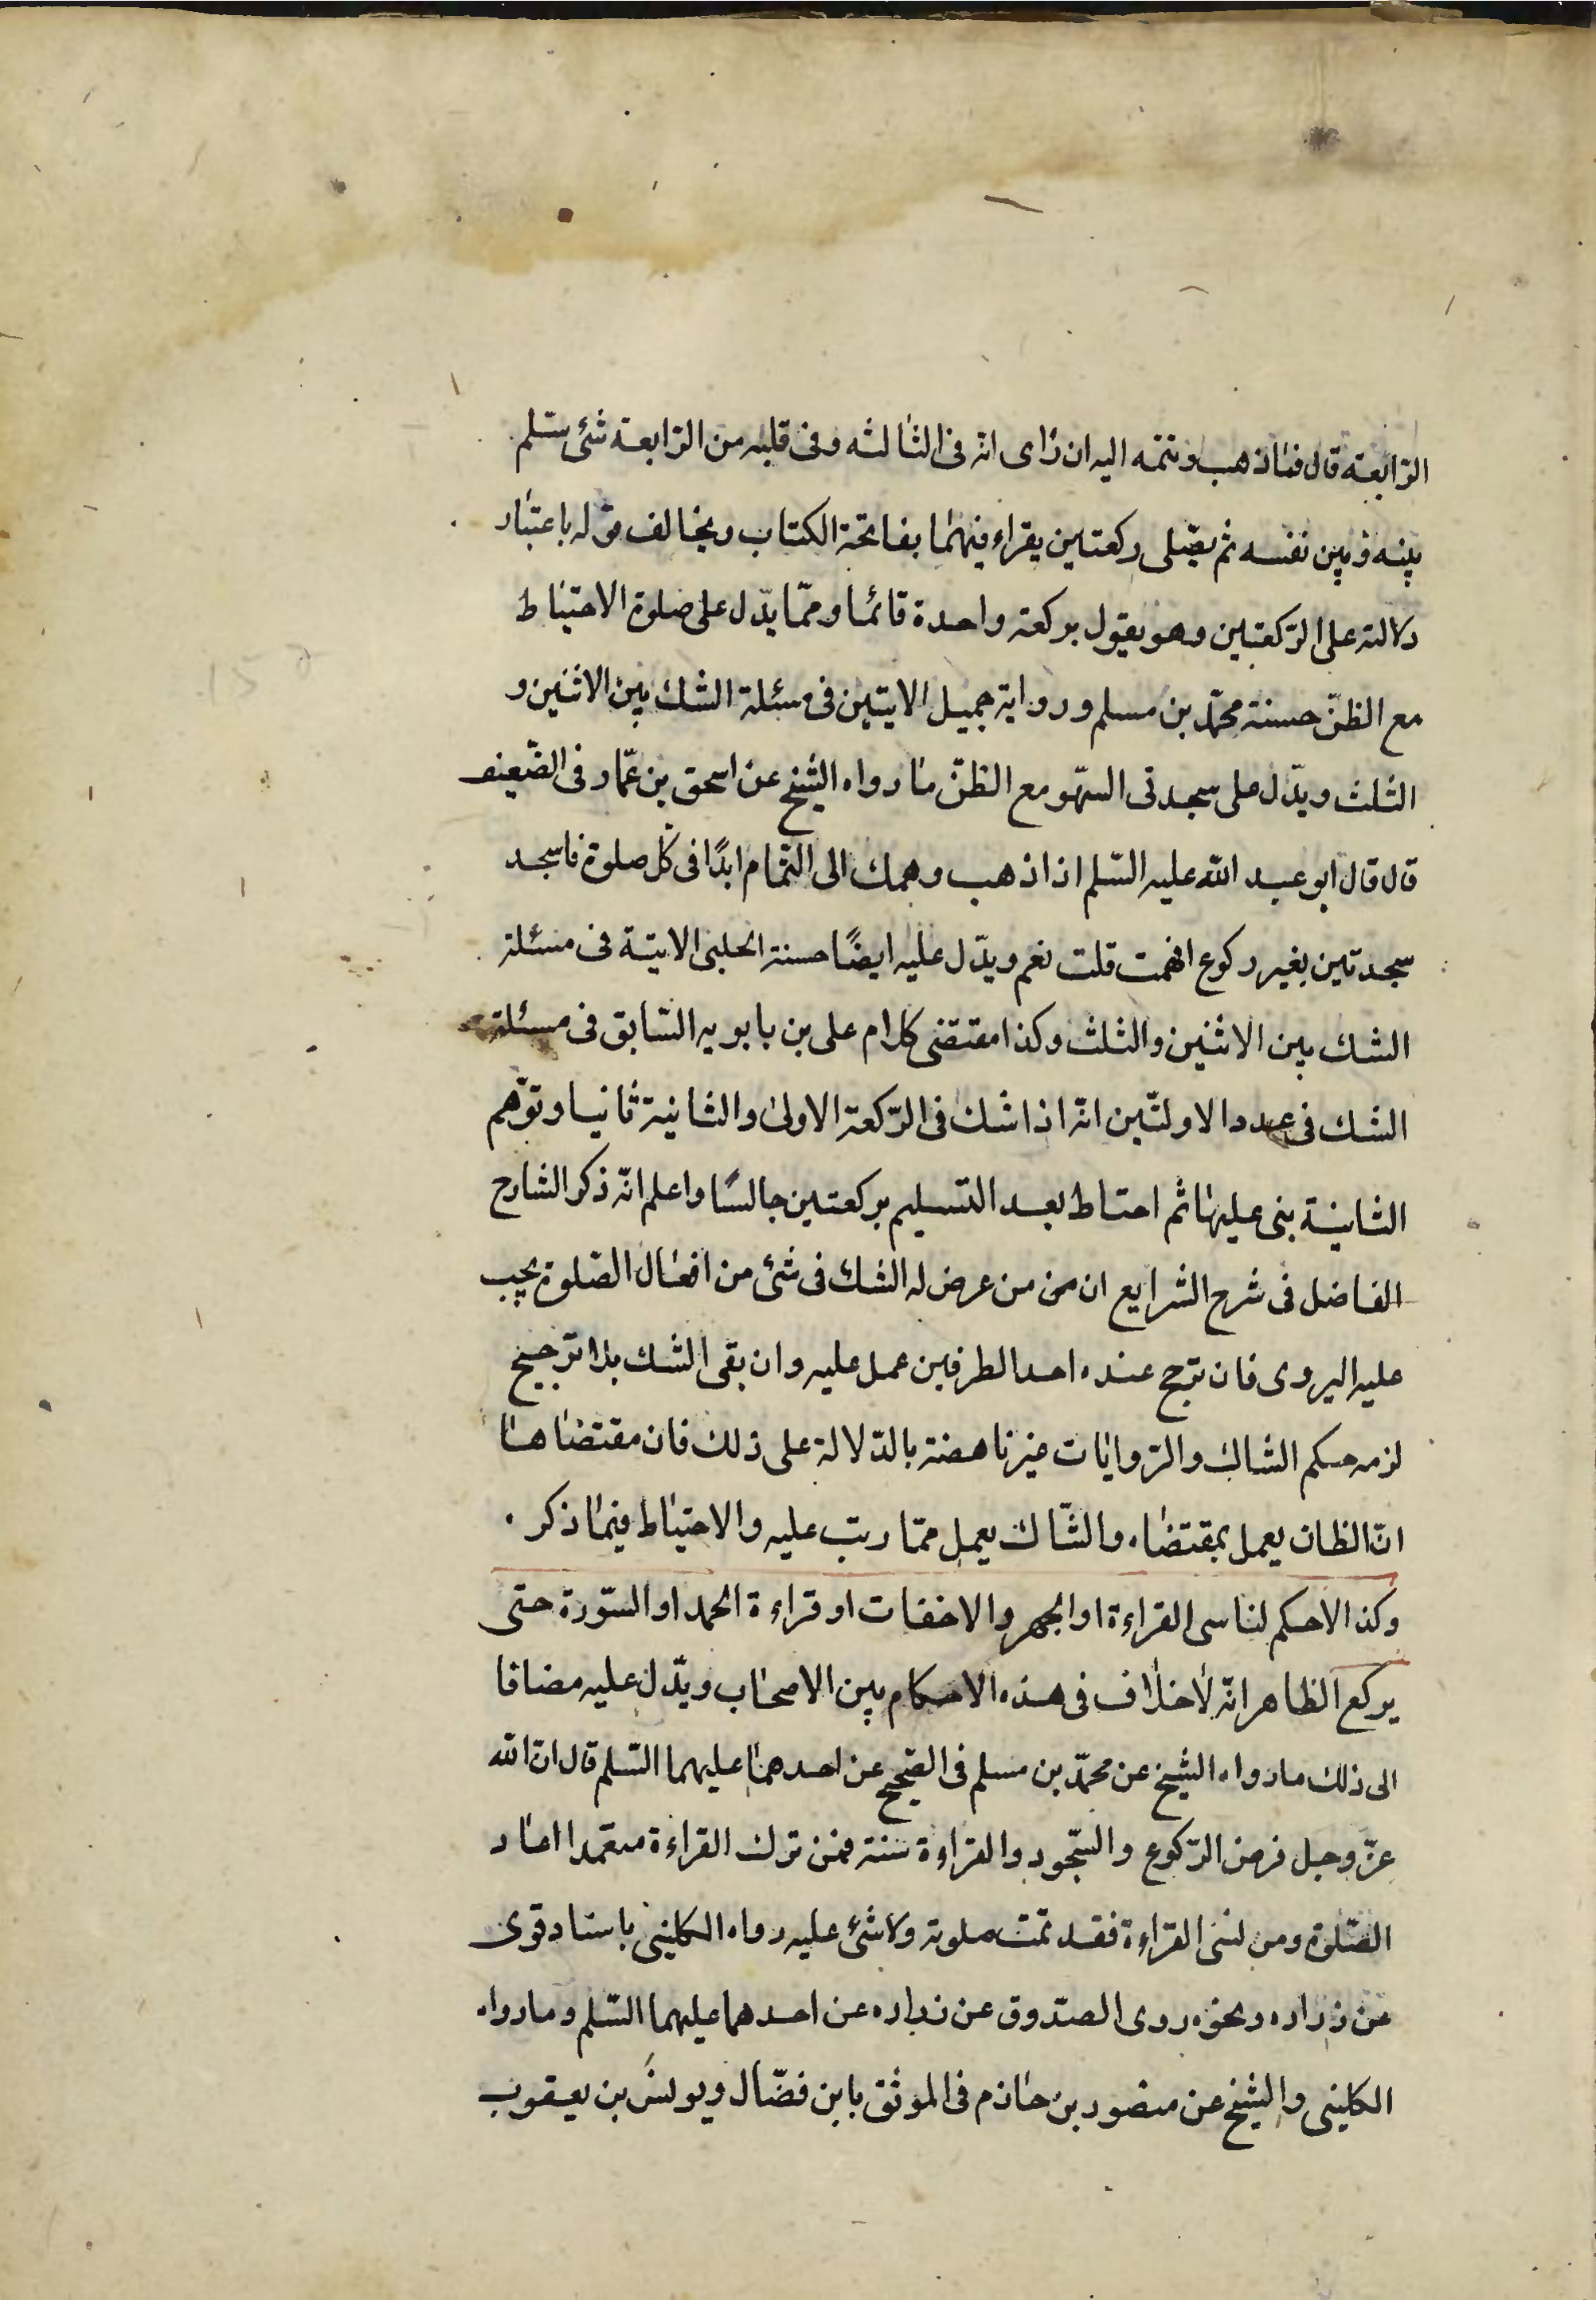 الرّابعة قال فما ذهب وتمّه اليه ان رأى انّه فى الثالثه وفى قلبه من الرّابعة شئ سلّم
بينه وبين نفسه ثم يصّلى ركعتين يقراء فيهما بفاتحة الكتاب ويخالف قوله باعتبار
دلالته على الرّكعتين وهو يقول بركعة واحدة قائما وممّا يدّل على صلوة الاحتياط
مع الظنّ حسنة محمّد بن مسلم ورواية جميل الاتيتين فى مسئلة الشك بين الاثنين و
الثلث ويدّل على سجدتى السهّو مع الظنّ ما رواه الشيخ عن اسحق بن عمّار فى الضّعيف
قال قال ابو عبد الله عليه السّلم اذا ذهب وهمك الى التّمام ابدًا فى كل صلوة فاسجد
سجدتين بغير ركوع افهمت قلت نعم ويدّل عليه ايضًا حسنة الحلبى الاتية فى مسئلة
الشك بين الاثنين والثلث وكذا مقتضى كلام على بن بابويه السّابق فى مسئلة
الشك فى عدد الاولتين انّه اذا شك فى الرّكعة الاولى والثانية ثانيا وتوّهم
الثانية بنى عليها ثم احتاط بعد التسليم بركعتين جالسًا واعلم انّه ذكر الشارح
الفاضل فى شرح الشرايع ان من من عرض له الشك فى شئ من افعال الصّلوة يجب
عليه اليروى فان ترجح عنده احد الطرفين عمل عليه وان بقى الشك بلا ترجيح
لزمه حكم الشاك والرّوايات غير ناهضة بالدّلالة على ذلك فان مقتضاها
انّ الظان يعمل بمقتضاه والشّاك يعمل ممّا رتب عليه والاحتياط فيما ذكر .
وكذا لاحكم لناسى القراءة او الجهر والاخفات او قراءة الحمد او السّورة حتى
يركع الظاهر انّه لاخلاف فى هذه الاحكام بين الاصحاب ويدّل عليه مضافا
الى ذلك ما رواه الشيخ عن محمّد بن مسلم فى الصّحيح عن احدهما عليهما السّلم قال انّ الله
عزّ وجل فرض الرّكوع والسّجود والقراءة سنة فمن ترك القراءة متعمّدا اعاد
الصّلوة ومن نسى القراءة فقد تمّت صلوته ولا شئ عليه رواه الكلينى باسناد قوى
عن زراره ونحوه روى الصدّوق عن زراره عن احدهما عليهما السّلم وما رواه
الكلينى والشيخ عن منصور بن حازم فى الموثق بابن فضّال ويونس بن يعقوب